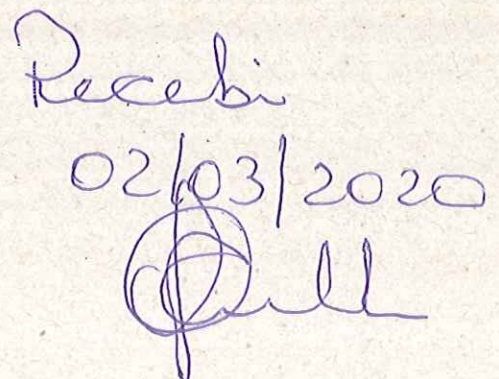 Recebi
02/03/2020